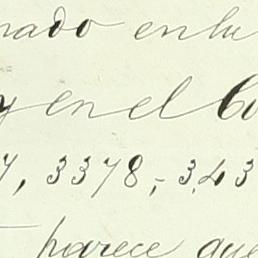 nado en la
y en el Co
7, 3378,- 3,43
parece que